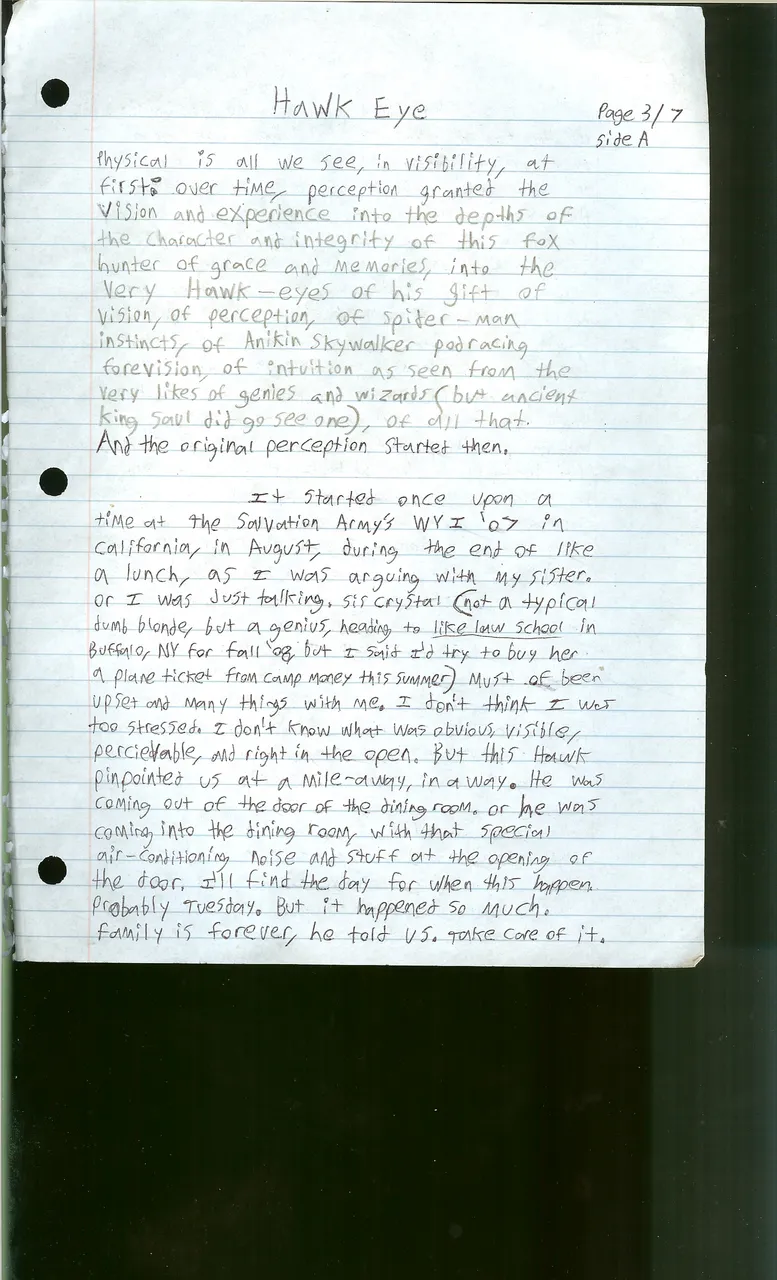 Hawk Eye
Page 3/7
side A
Physical is all we see, in visibility, at
first. over time, perception granted the
vision and experience into the depths of
the character and integrity of this fox
hunter of grace and memories, into the
very Hawk-eyes of his gift of
vision, of perception, of spider-man
instincts, of Anikin Skywalker podracing
forevision, of intuition as seen from the
very likes of genies and wizards (but ancient
king Saul did go see one), of all that.
And the original perception started then.
It started once upon a
time at the Salvation Army's WYI '07 in
California, in August, during the end of like
a lunch, as I was arguing with my sister.
or I was Just talking. Sis Crystal (not a typical
dumb blonde, but a genius, heading to like law school in
Buffalo, NY for fall '08, but I said I'd try to buy her
a plane ticket from camp money this summer) Must of been
upset and many things with me. I don't think I was
too stressed. I don't know what was obvious, visible,
percievable, and right in the open. But this Hawk
pinpointed us at a mile-away, in a way. He was
coming out of the door of the dining room. or he was
coming into the dining room, with that special
air-conditioning noise and stuff at the opening of
the door. I'll find the day for when this happen.
Probably Tuesday. But it happened so much.
Family is forever, he told us. Take care of it.